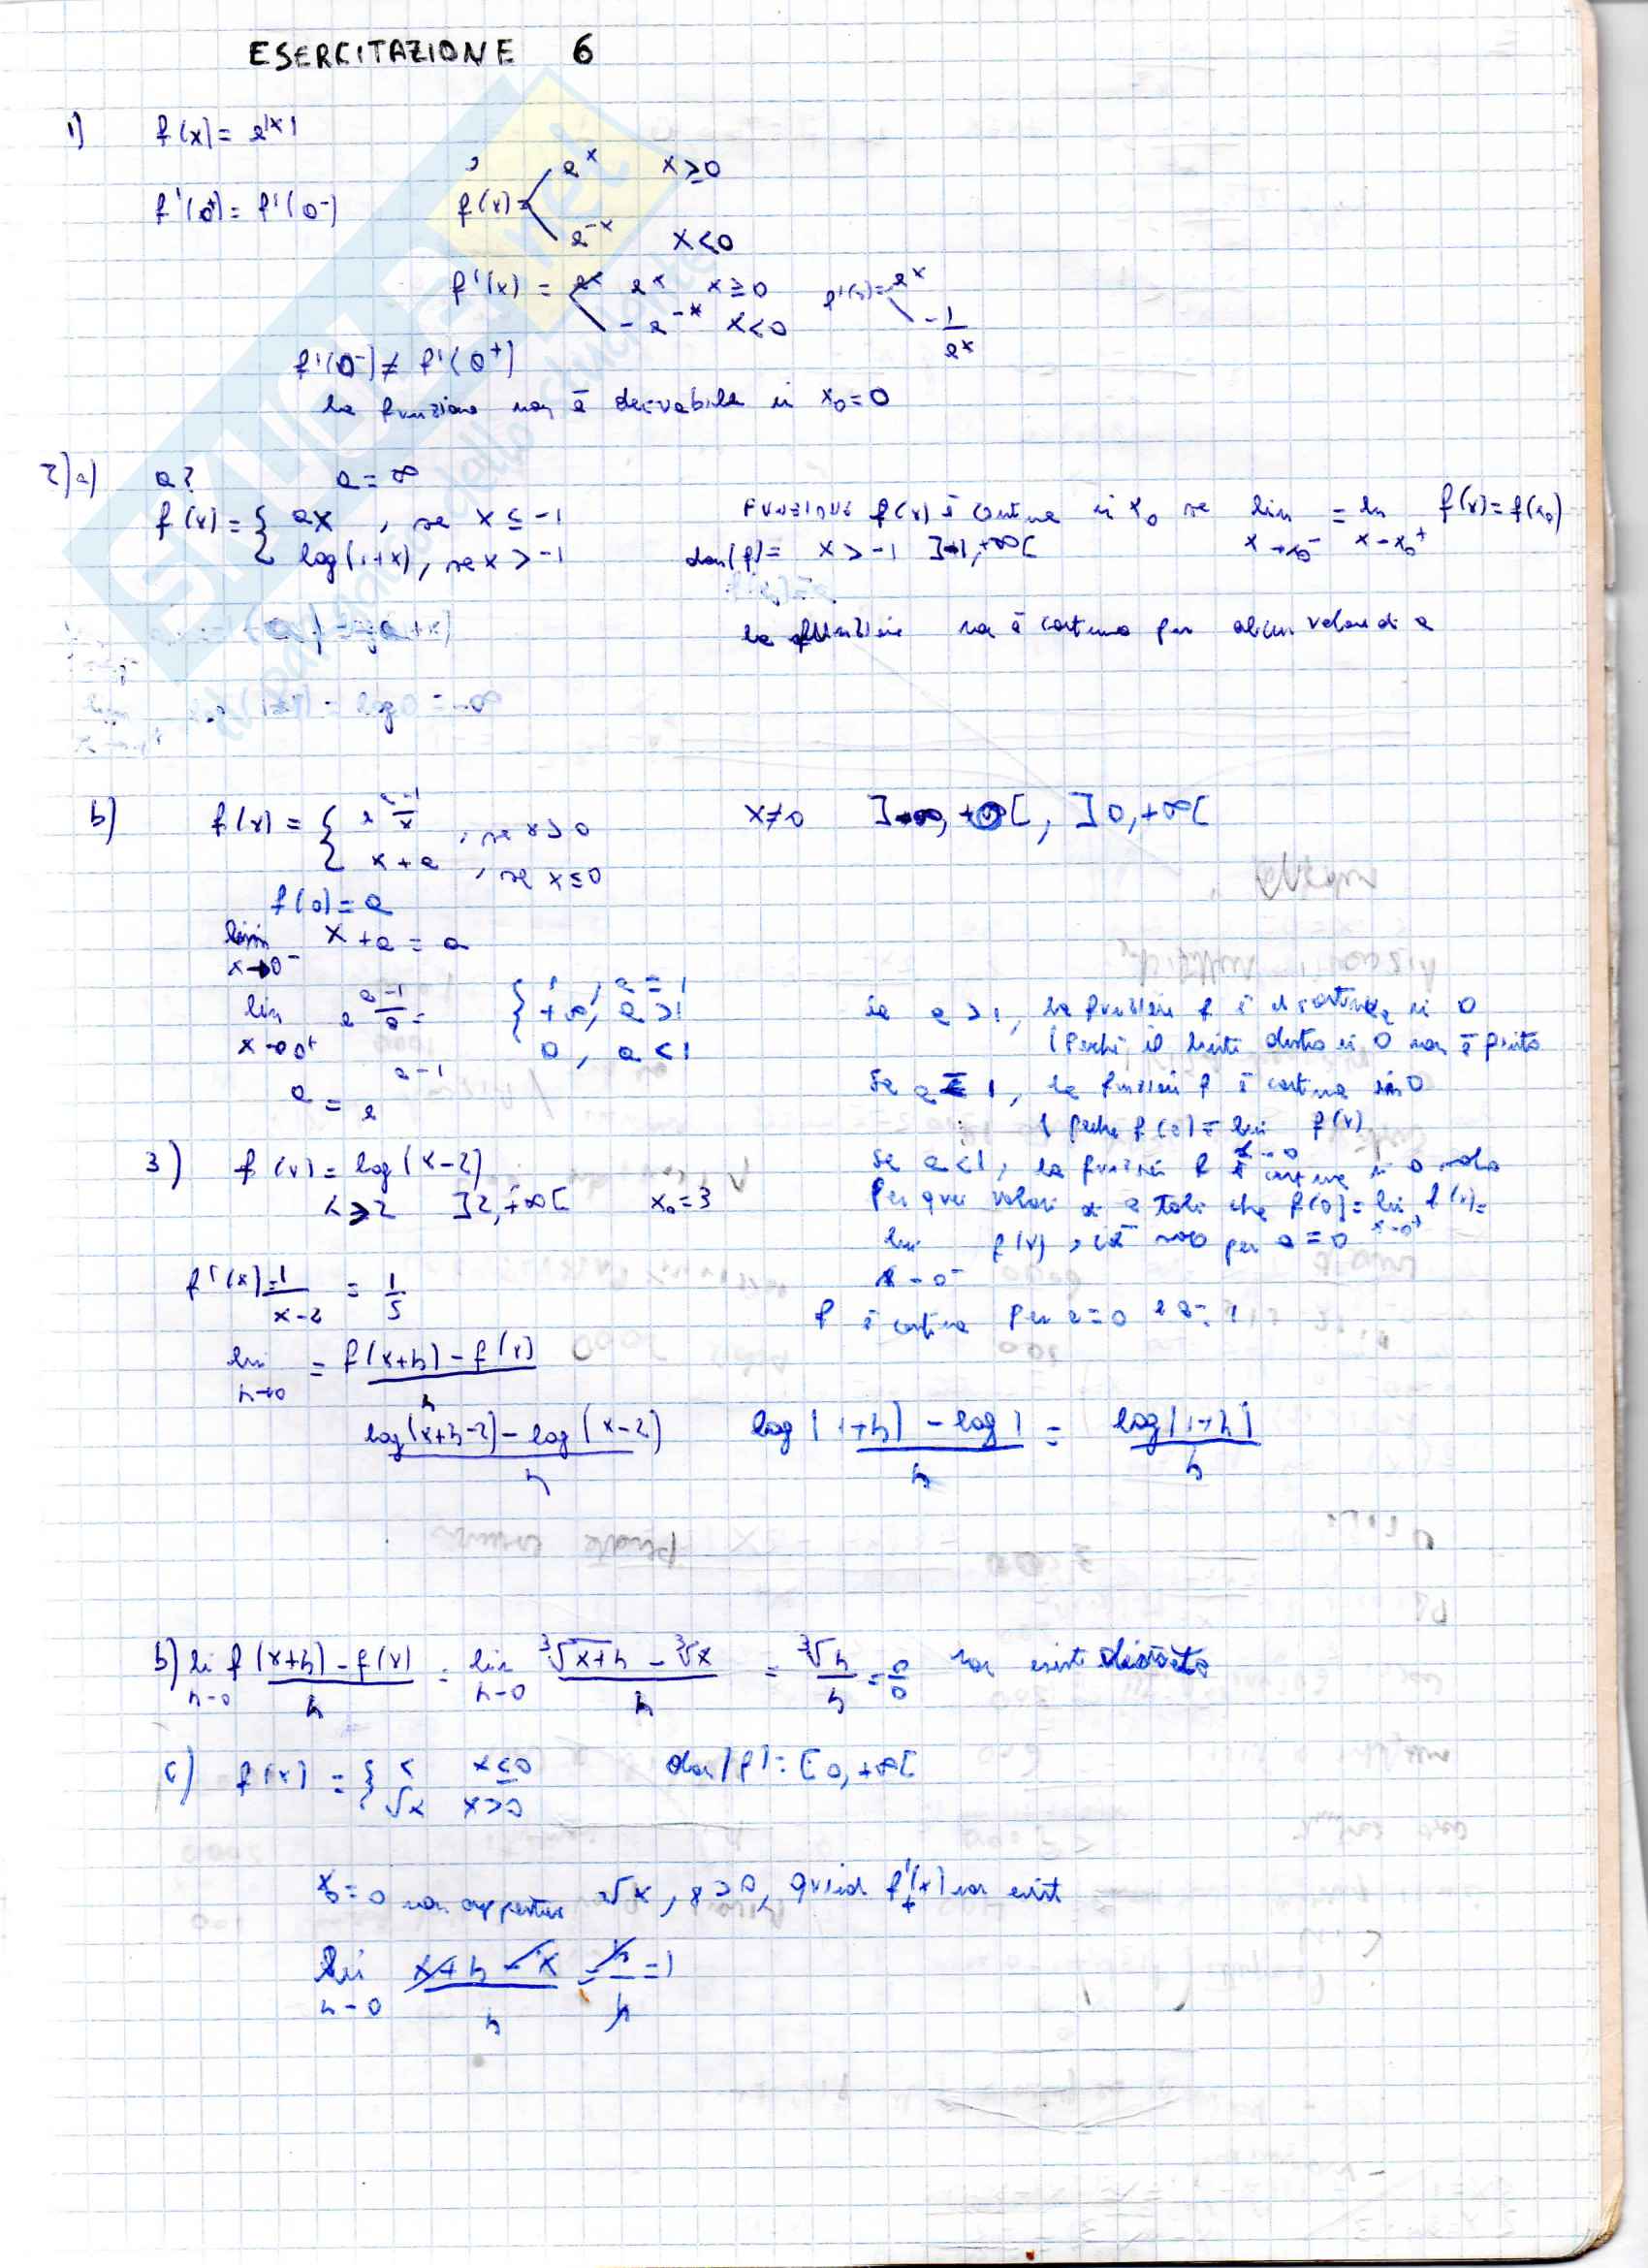 ESERCITAZIONE 6
1) f(x) = e^|x|
f'(0+) = f'(0-)
f(x) = e^x x≥0
e^-x x<0
f'(x) = e^x e^x x≥0 f'(x) = e^x
- e^-x x<0 - 1/e^x
f'(0-) ≠ f'(0+)
la funzione non è derivabile in x0=0
2)a) a? a=∞
f(x) = { ax , se x ≤ -1
log(1+x), se x > -1
FUNZIONE f(x) è continua in x0 se lim x→x0- = lim x→x0+ f(x) = f(x0)
dom(f) = x > -1 ]-1,+∞[
la funzione non è continua per alcun valore di a
log 0 = -∞
b) f(x) = { e^(a-1)/x , se x>0
x+a , se x≤0
x≠0 ]-∞, +∞[, ]0,+∞[
f(0) = a
lim x→0- x+a = a
lim x→0+ e^(a-1)/0 = { 1, a=1
+∞, a>1
0, a<1
a = e^a-1
Se a > 1, la funzione f è discontinua in 0
(perché il limite destro in 0 non è finito
Se a = 1, la funzione f è continua in 0
(perché f(0) = lim x→0 f(x)
Se a<1, la funzione f è continua in 0 solo
per quei valori di a tali che f(0) = lim x→0+ f(x) =
lim x→0- f(x), cioè solo per a=0
f è continua per a=0 e a=1
3) f(x) = log(x-2)
x>2 ]2,+∞[ x0=3
f'(x) = 1/x-2 = 1/5
lim h→0 = f(x+h) - f(x)/h
log(x+h-2) - log(x-2)/h log(1+h) - log 1/h = log(1+h)/h
b) lim h→0 f(x+h) - f(x)/h = lim h→0 ∛x+h - ∛x/h = ∛h/h = 0/0 non esiste
c) f(x) = { x x≤0
√x x>0
dom(f) = [0,+∞[
x0=0 non √x, x>0, quindi f'+(x) non esiste
lim h→0 x+h-x/h = h/h = 1